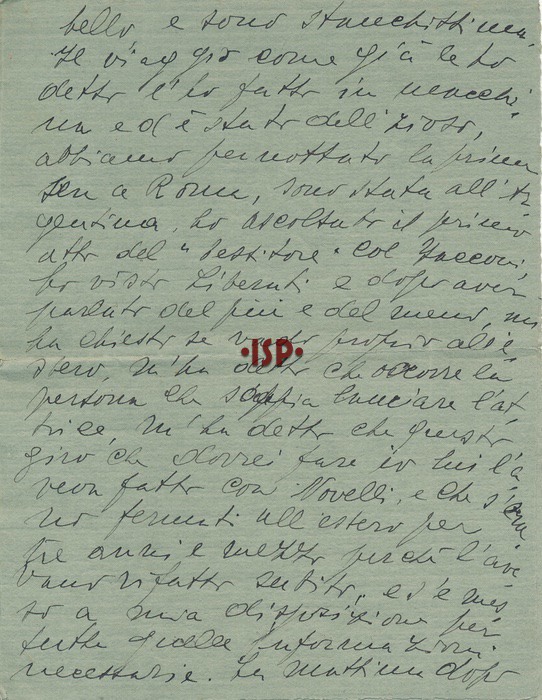 bello e sono stanchissima.
Il viaggio come già le ho
detto l'ho fatto in macchi
na ed è stato delizioso,
abbiamo pernottato la prima
sera a Roma, sono stata all'Ar
gentina, ho ascoltato il primo
atto del "Tessitore" col Zacconi,
ho visto Liberati e dopo aver
parlato del più e del meno, mi
ha chiesto se vado proprio all'e
stero, m'ha detto che occorre la
persona che sappia lanciare l'at
trice, m'ha detto che questo
giro che dovrei fare io lui l'a
veva fatto con Novelli, e che s'era
no fermati all'estero per
tre anni e mezzo perché l'ave
vano rifatto subito, e s'è mes
so a mia disposizione per
tutte quelle informazioni
necessarie. La mattina dopo
·ISP·